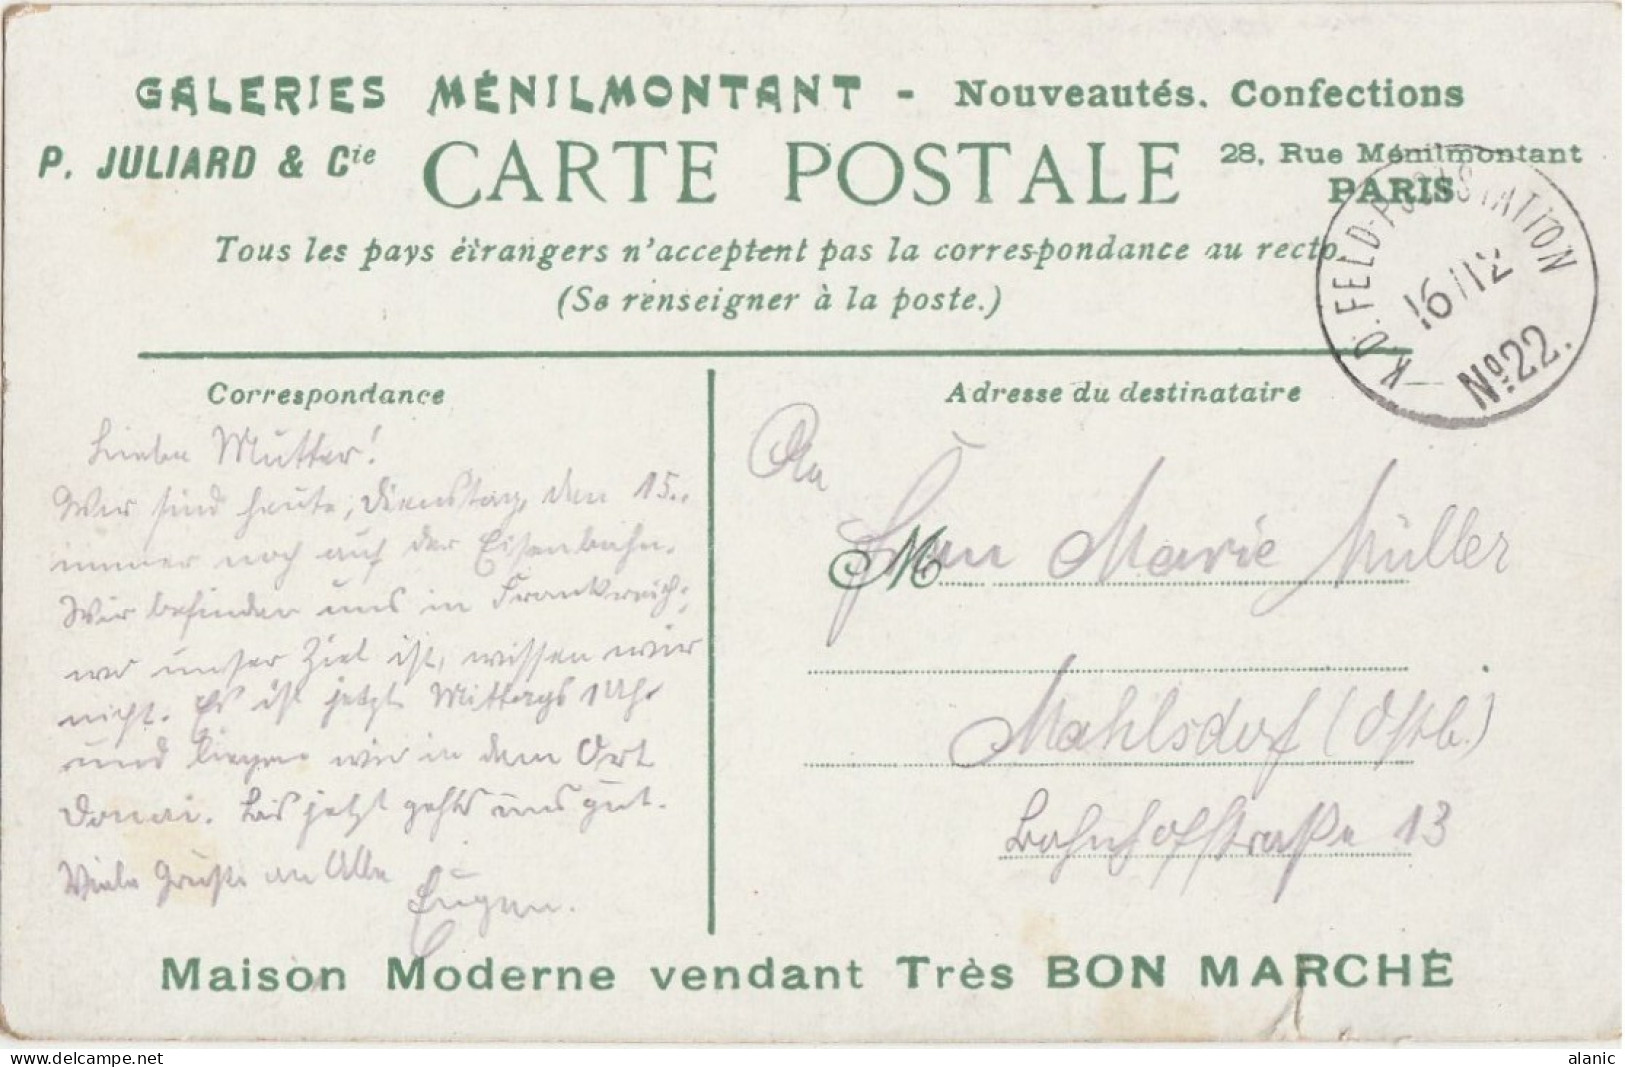 GALERIES MÉNILMONTANT - Nouveautés. Confections
P. JULIARD & Cie CARTE POSTALE 28, Rue Ménilmontant
PARIS
Tous les pays étrangers n'acceptent pas la correspondance au recto.
(Se renseigner à la poste.)
K.D. FELD-POSTSTATION
16/12
No. 22.
Correspondance
Lieben Mutter!
Wir sind heute, Dienstag, den 15.,
immer noch auf der Eisenbahn.
Wir befinden uns in Frankreich;
wo unser Ziel ist, wissen wir
nicht. Es ist jetzt Mittags 1 Uhr
und liegen wir in dem Ort
Douai. Bis jetzt gehts uns gut.
Viele Grüße an Alle
Eugen.
Adresse du destinataire
An
M
Frau Marie Müller
Mahlsdorf (Ostb.)
Bahnhofstraße 13
Maison Moderne vendant Très BON MARCHÉ
delcampe.net
alanic